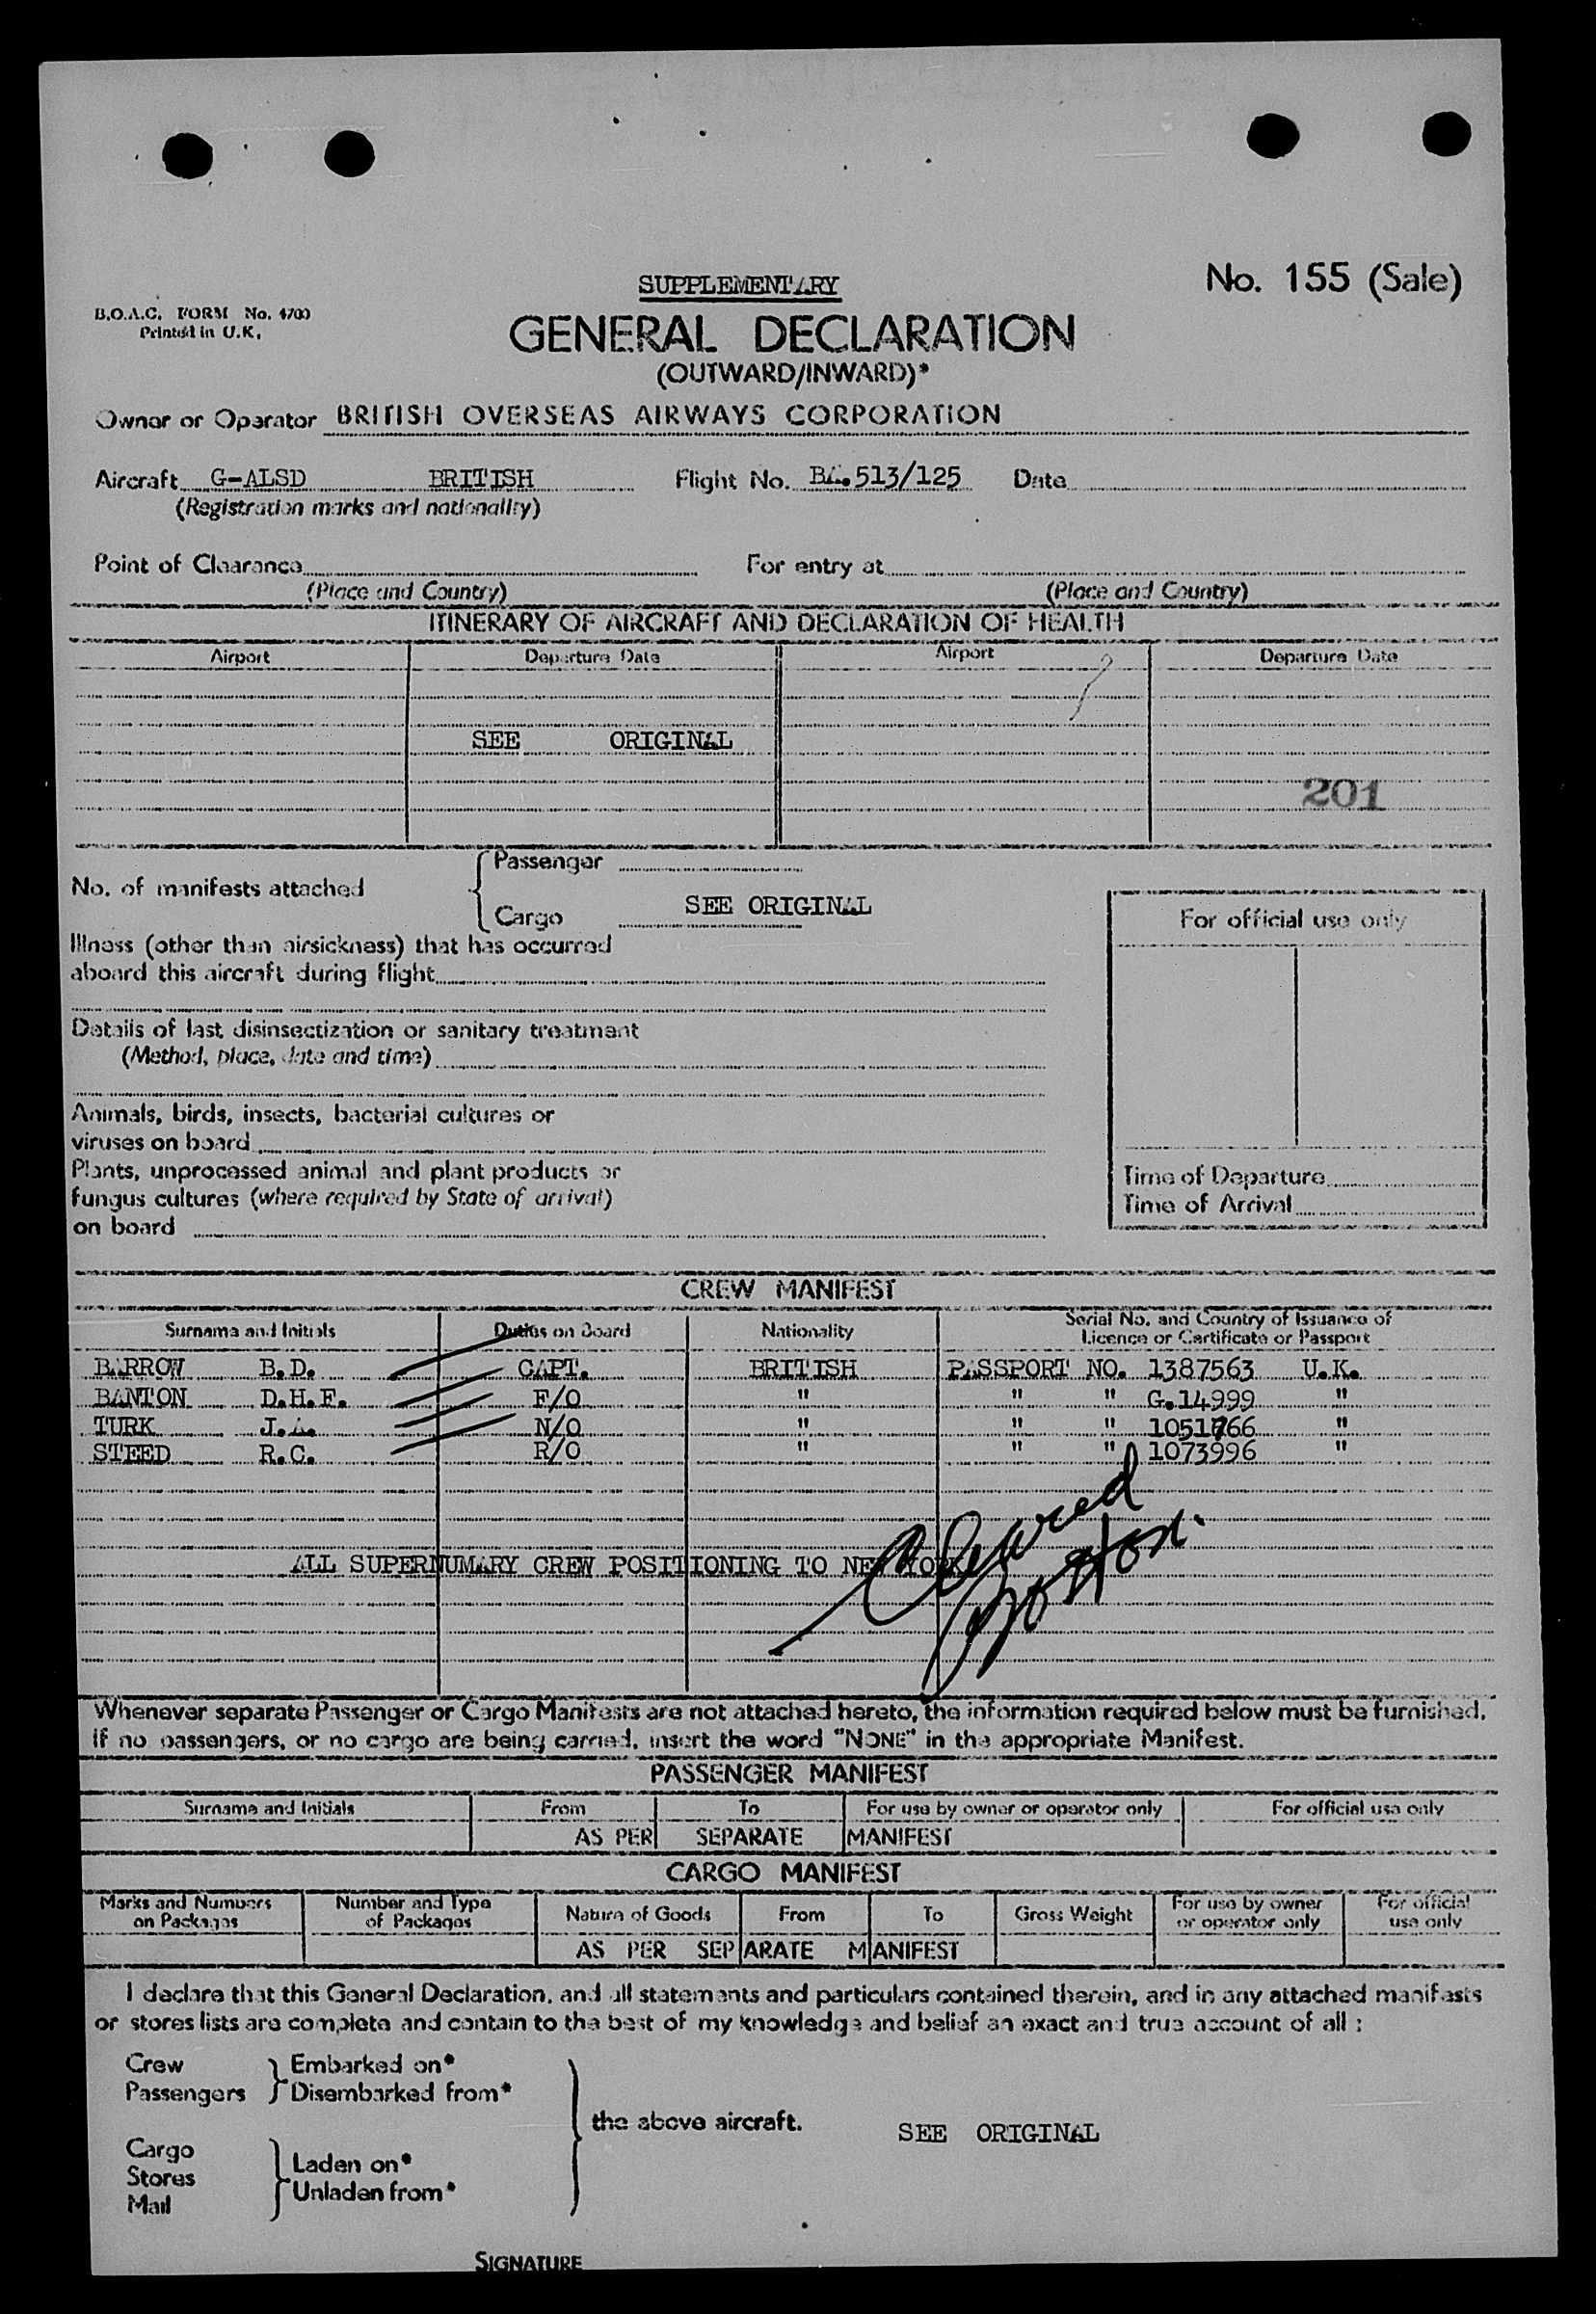 SUPPLEMENTARY
No. 155 (Sale)
B.O.A.C. FORM No. 4700
Printed in U.K.
GENERAL DECLARATION
(OUTWARD/INWARD)*
Owner or Operator BRITISH OVERSEAS AIRWAYS CORPORATION
Aircraft G-ALSD BRITISH Flight No. BA.513/125 Date
(Registration marks and nationality)
Point of Clearance For entry at
(Place and Country) (Place and Country)
ITINERARY OF AIRCRAFT AND DECLARATION OF HEALTH
Airport Departure Date Airport Departure Date
SEE ORIGINAL
201
Passenger
No. of manifests attached
Cargo SEE ORIGINAL
For official use only
Illness (other than airsickness) that has occurred
aboard this aircraft during flight
Details of last disinsectization or sanitary treatment
(Method, place, date and time)
Animals, birds, insects, bacterial cultures or
viruses on board
Plants, unprocessed animal and plant products or
fungus cultures (where required by State of arrival)
on board
Time of Departure
Time of Arrival
CREW MANIFEST
Surname and Initials Duties on Board Nationality Serial No. and Country of Issuance of
Licence or Certificate or Passport
BARROW B.D. CAPT. BRITISH PASSPORT NO. 1387563 U.K.
BANTON D.H.F. F/O " " " G.14999 "
TURK J.A. N/O " " " "
STEED R.C. R/O " " " 1073996 "
ALL SUPERNUMARY CREW POSITIONING TO NEW YORK
Cleared
Boston.
Whenever separate Passenger or Cargo Manifests are not attached hereto, the information required below must be furnished.
If no passengers, or no cargo are being carried, insert the word "NONE" in the appropriate Manifest.
PASSENGER MANIFEST
Surname and Initials From To For use by owner or operator only For official use only
AS PER SEPARATE MANIFEST
CARGO MANIFEST
Marks and Numbers on Packages Number and Type of Packages Nature of Goods From To Gross Weight For use by owner or operator only For official use only
AS PER SEPARATE MANIFEST
I declare that this General Declaration, and all statements and particulars contained therein, and in any attached manifests
or stores lists are complete and contain to the best of my knowledge and belief an exact and true account of all :
Crew Embarked on*
Passengers Disembarked from*
the above aircraft. SEE ORIGINAL
Cargo
Stores Laden on*
Mail Unladen from*
SIGNATURE